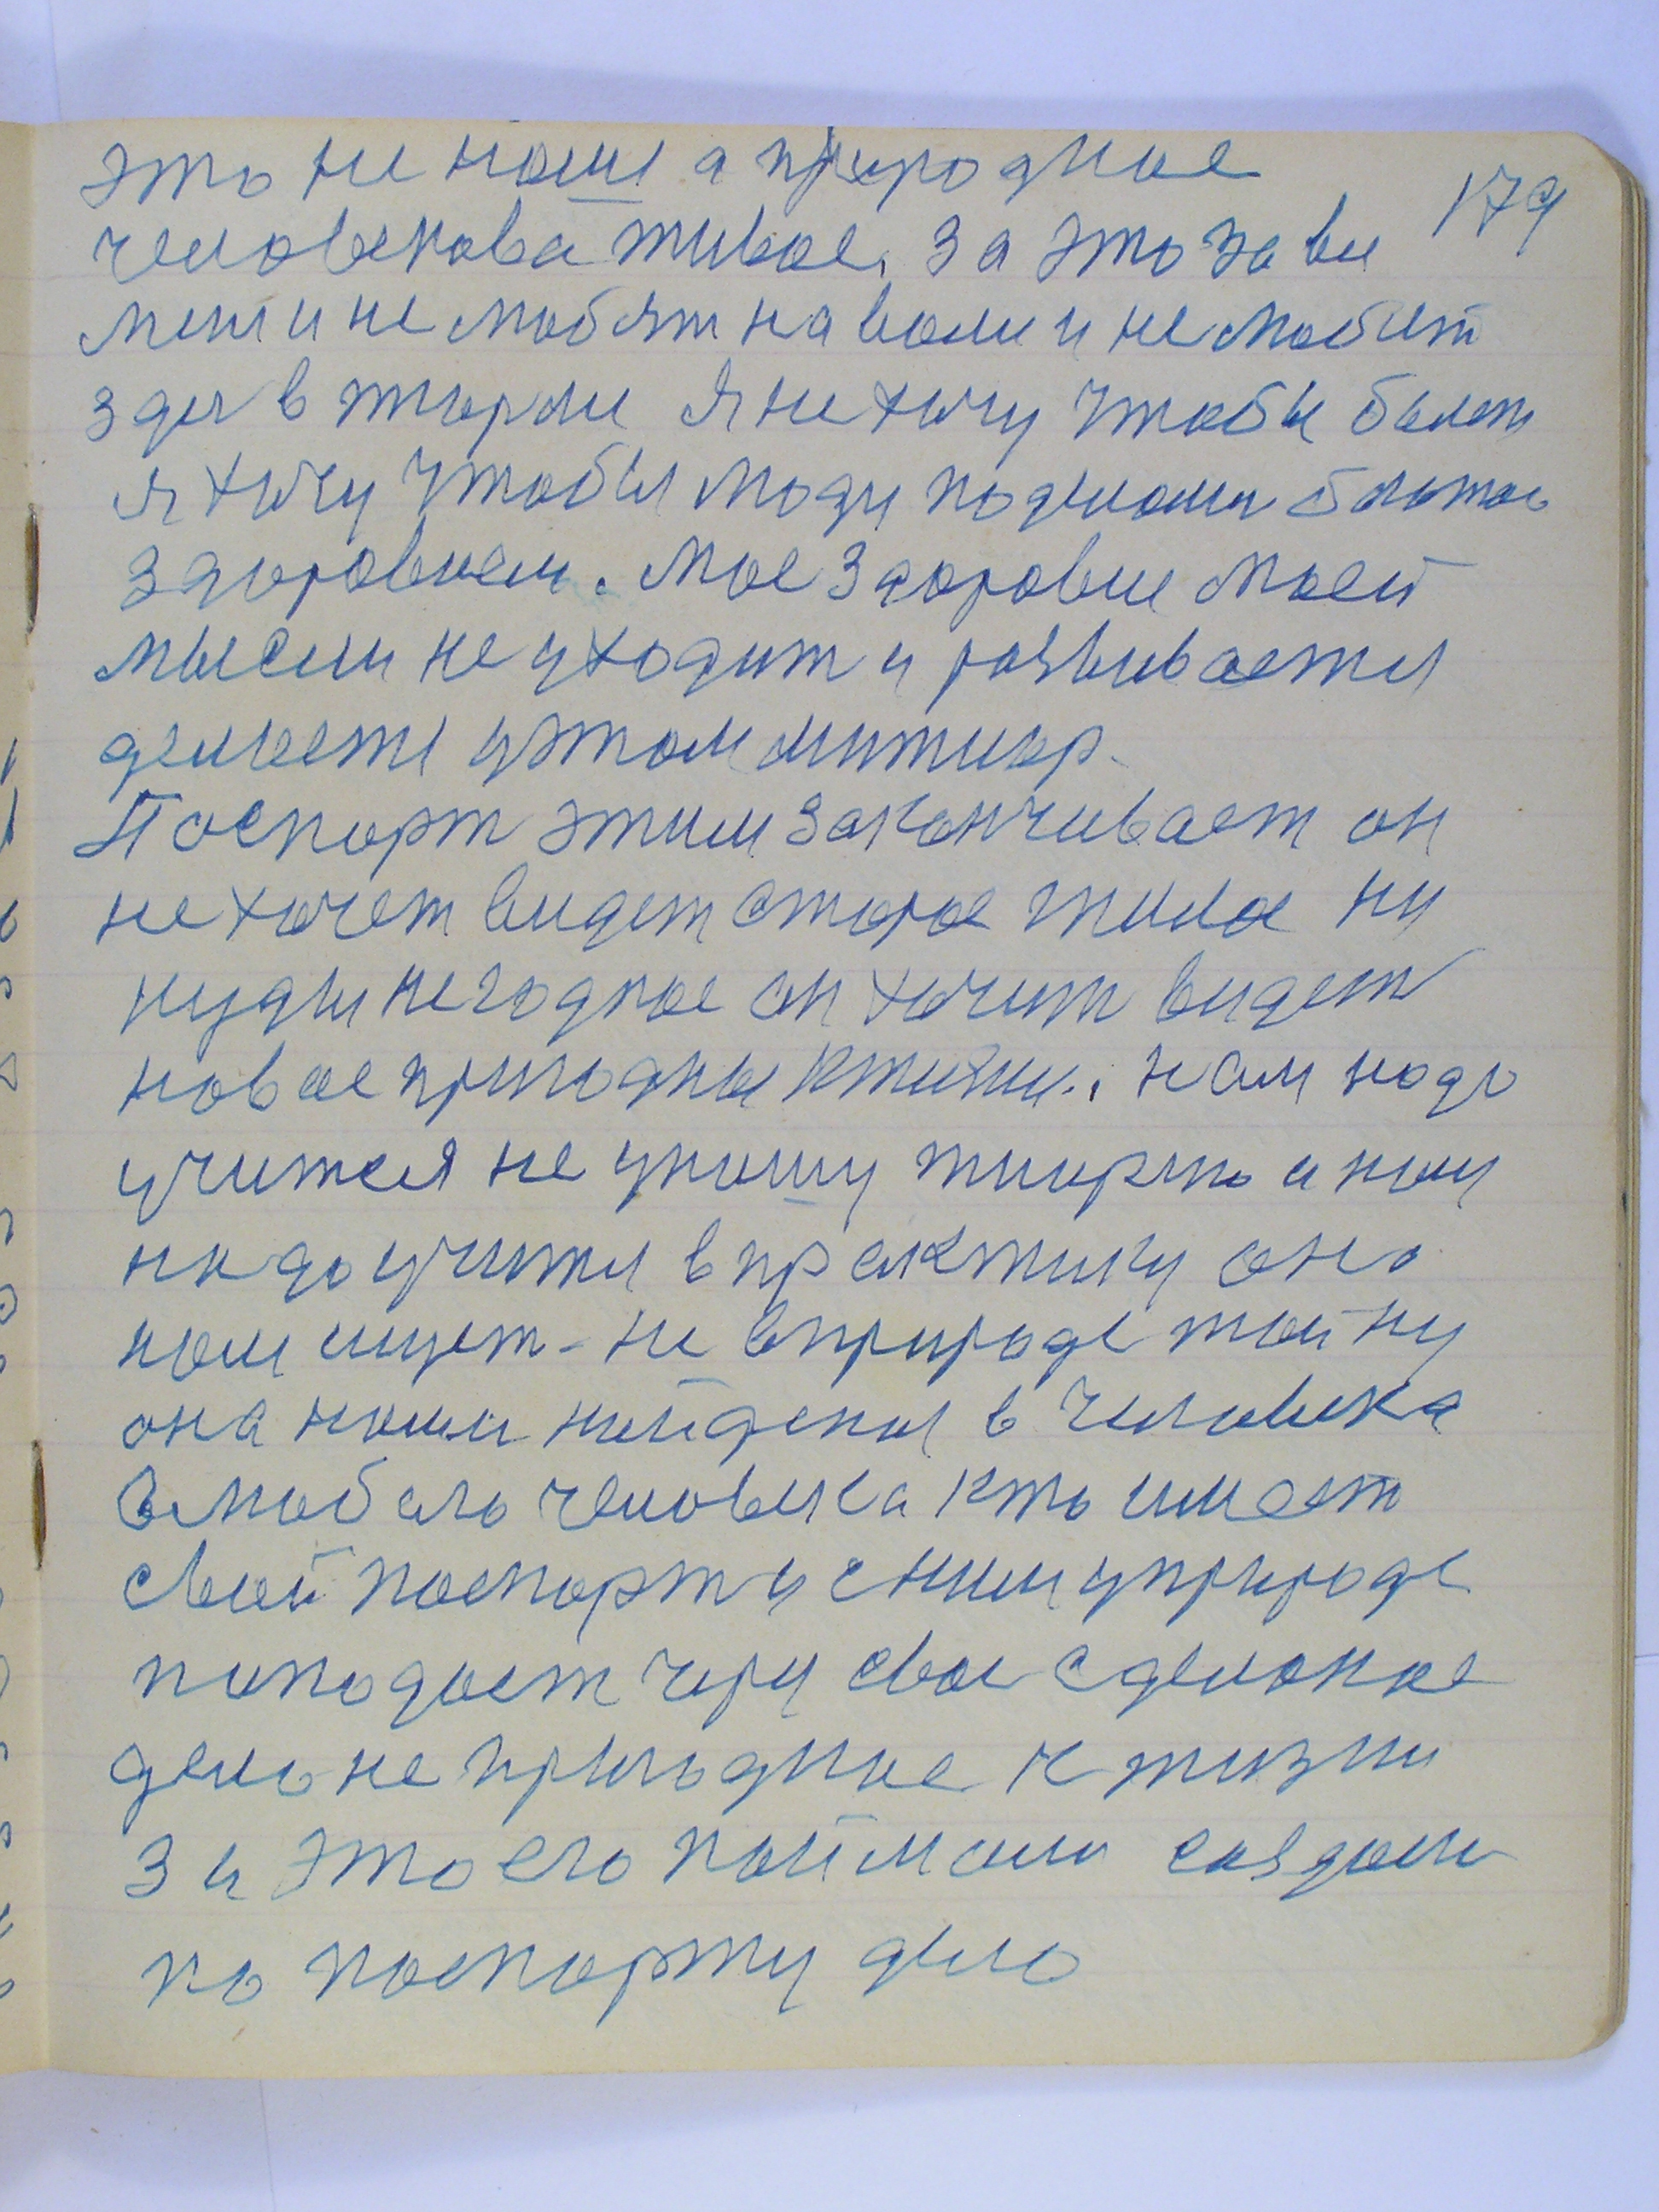 это не наше а природное
179
человекова живое. за это за все
меня не любят на воли и не любят
здес в тюрми я не хочу чтобы болет
я хочу чтобы люди поделали богатое
здоровием. Мое здоровие моей
мысли не уходит и развивается
делается у этом
Поспорт этим заканчивает он
не хочет видет старое гнилое ни
негодное он хочит видет
новое пригодное к жизни. нам надо
учится не у нашу тиорию а нам
надо учится в практику она
нам ищет не в природе тайну
она нами найденая в человека
в любого человека кто имеет
свой поспорт и с ним у природе
попадает через свое сделаное
дело не пригодное к жизни
за это его поймали создали
по поспорту дело